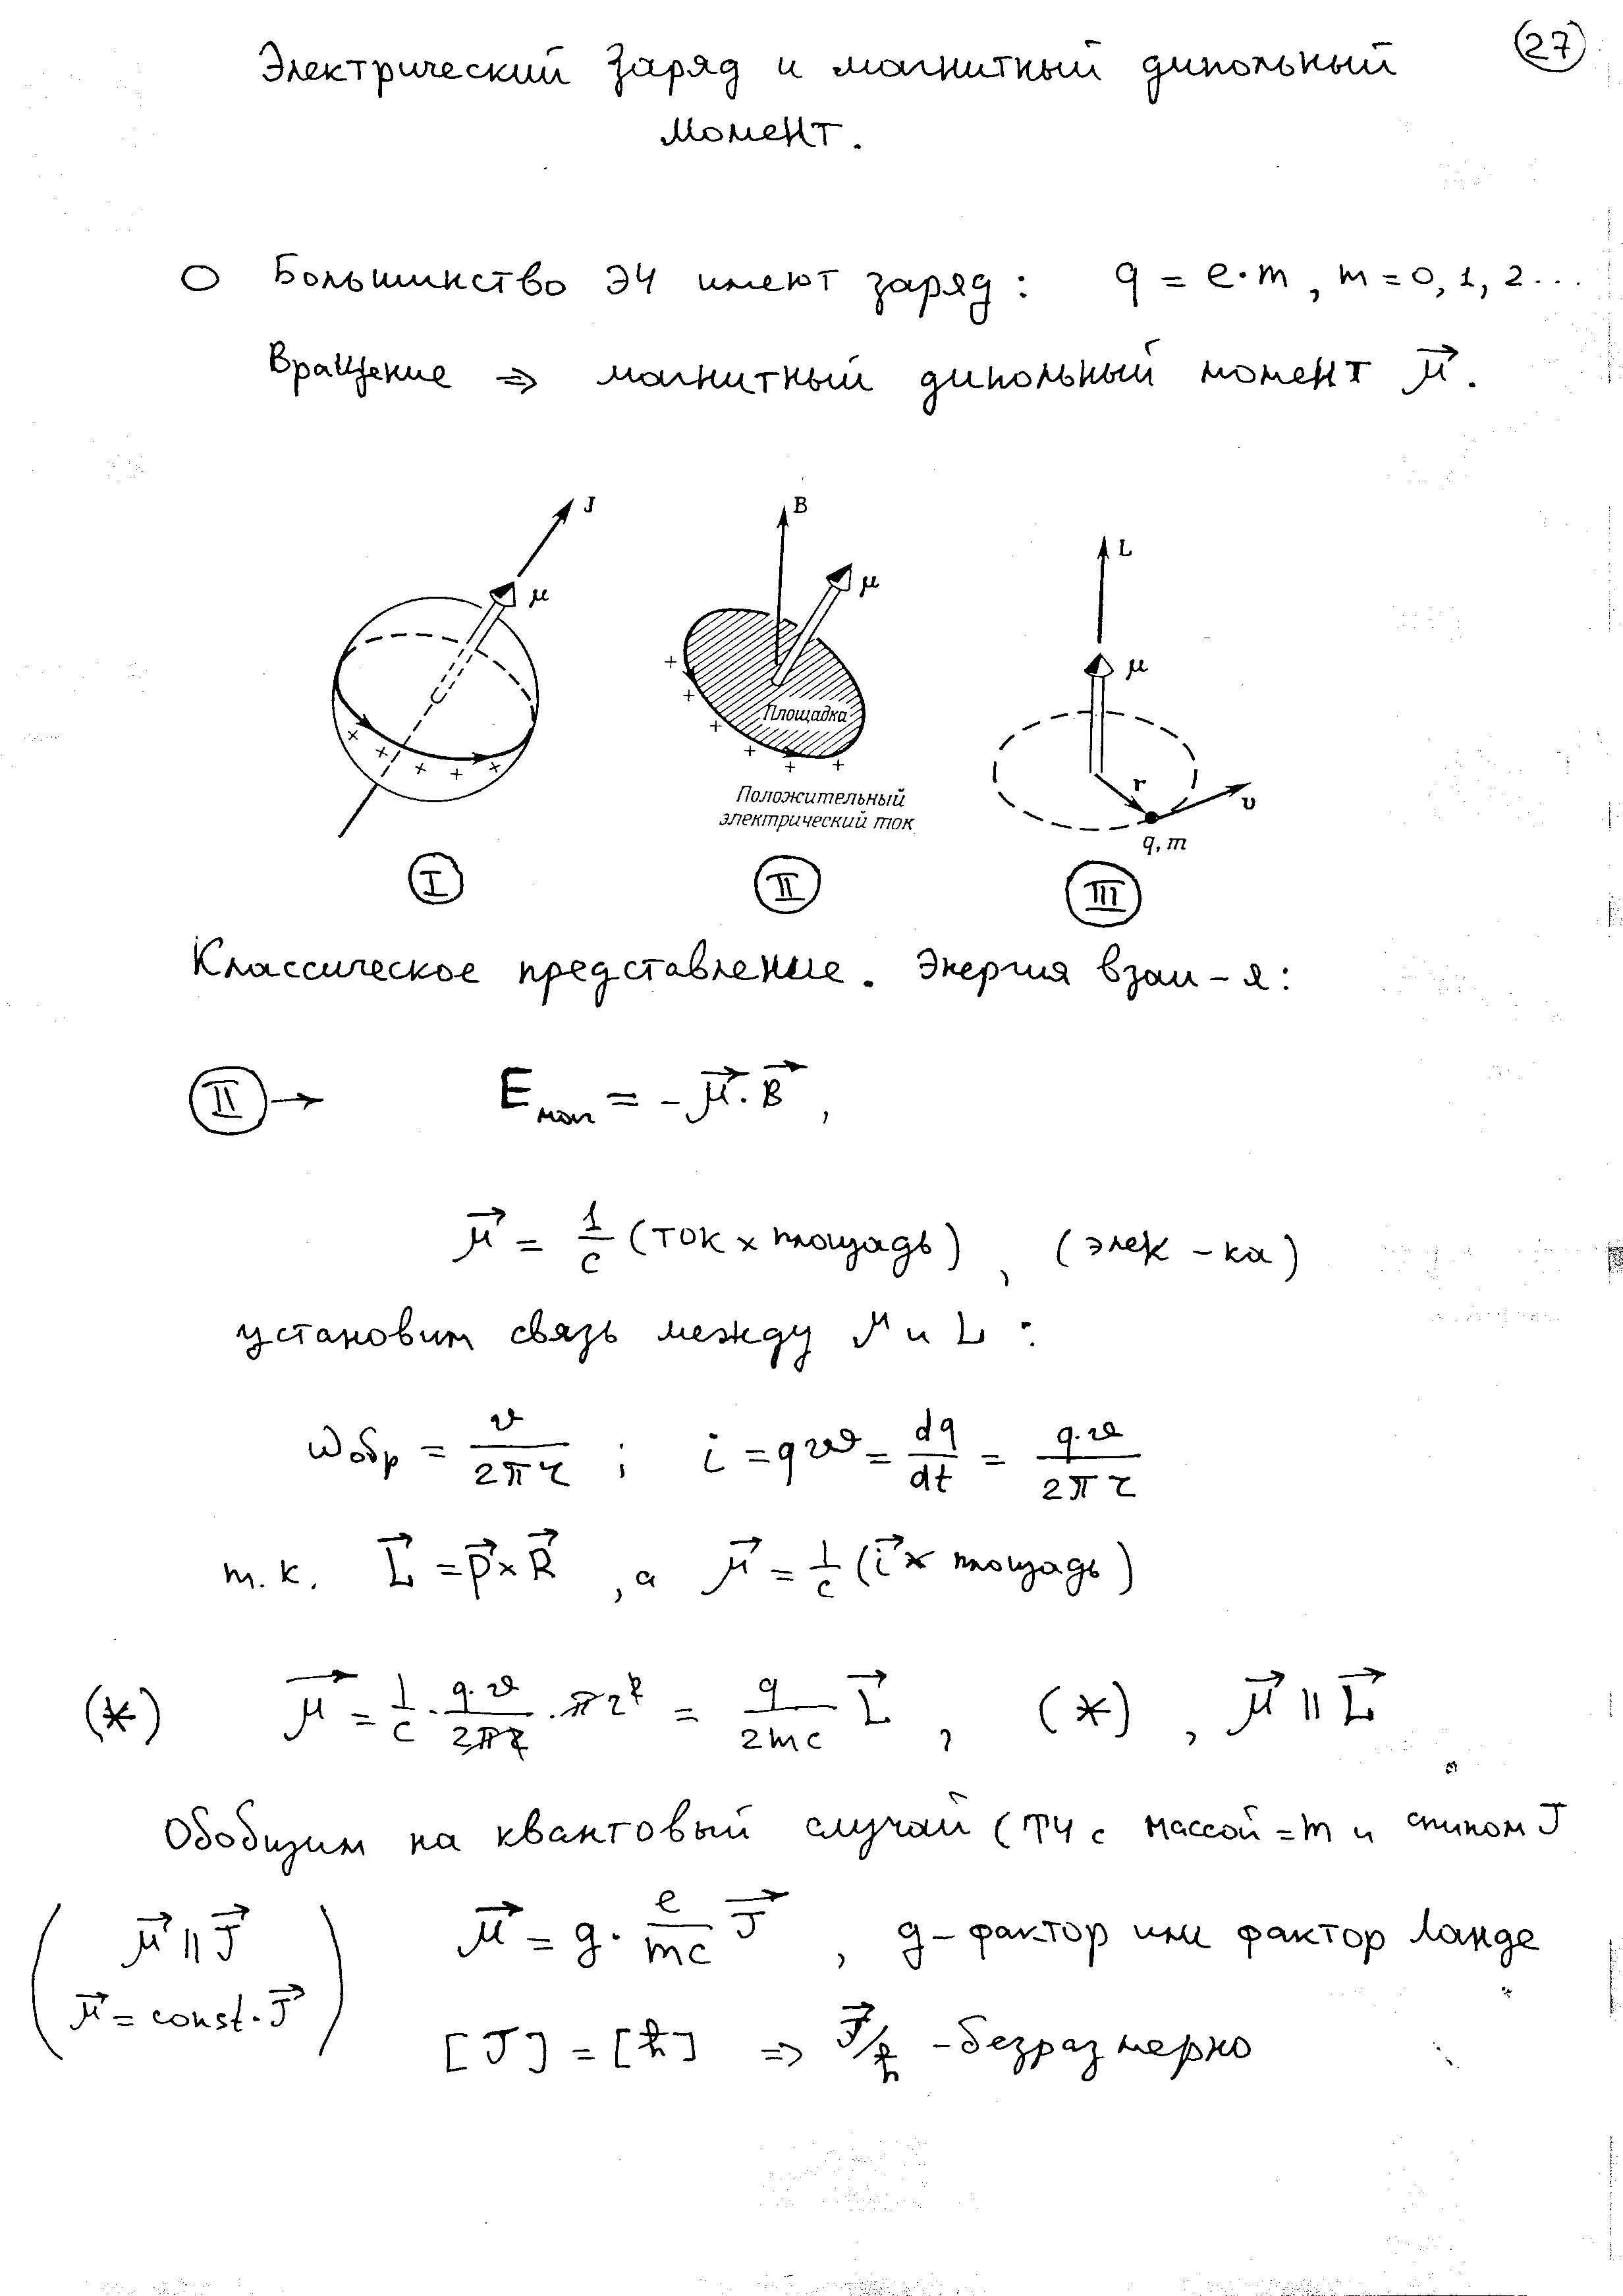 27
Электрический заряд и магнитный дипольный
момент.
○ Большинство ЭЧ имеют заряд: q = e·m, m = 0, 1, 2...
Вращение ⇒ магнитный дипольный момент μ⃗.
J
μ
B
μ
Площадка
Положительный
электрический ток
L
μ
r
v
q, m
I
II
III
Классическое представление. Энергия взаи-я:
II → E маг = -μ⃗·B⃗,
μ⃗ = 1/c (ток × площадь), (элек-ка)
установим связь между μ и L:
ω обр = v/2πr ; i = qω = dq/dt = q·v/2πr
т.к. L⃗ = p⃗×R⃗, а μ⃗ = 1/c (i⃗ × площадь)
(*) μ⃗ = 1/c · q·v/2πr · πr² = q/2mc L⃗, (*), μ⃗ ∥ L⃗
Обобщим на квантовый случай (ТЧ с массой = m и спином J
(μ⃗ ∥ J⃗
μ⃗ = const·J⃗)
μ⃗ = g· e/mc J⃗, g-фактор или фактор Ланде
[J] = [ħ] ⇒ J⃗/ħ - безразмерно